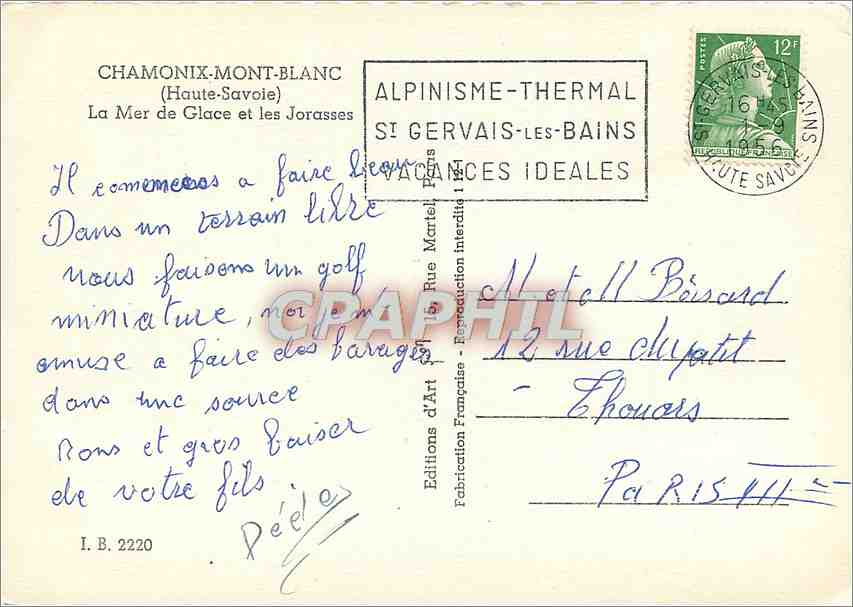 CHAMONIX-MONT-BLANC
(Haute-Savoie)
La Mer de Glace et les Jorasses
ALPINISME-THERMAL
ST GERVAIS-LES-BAINS
VACANCES IDEALES
POSTES
12F
REPUBLIQUE FRANÇAISE
ST GERVAIS-LES-BAINS
16H45
1-9
1956
HAUTE SAVOIE
Il a faire beau
Dans un terrain libre
nous faisons un golf
miniature, je
amuse a faire des barages
dans une source
Bons et gros baiser
de votre fils.
Dédé
I. B. 2220
Editions d'Art 15, Rue Martel, Paris
Fabrication Française - Reproduction interdite
M et Mll Boisard
12 rue du petit
- Thouars
PARIS III
CPAPHIL